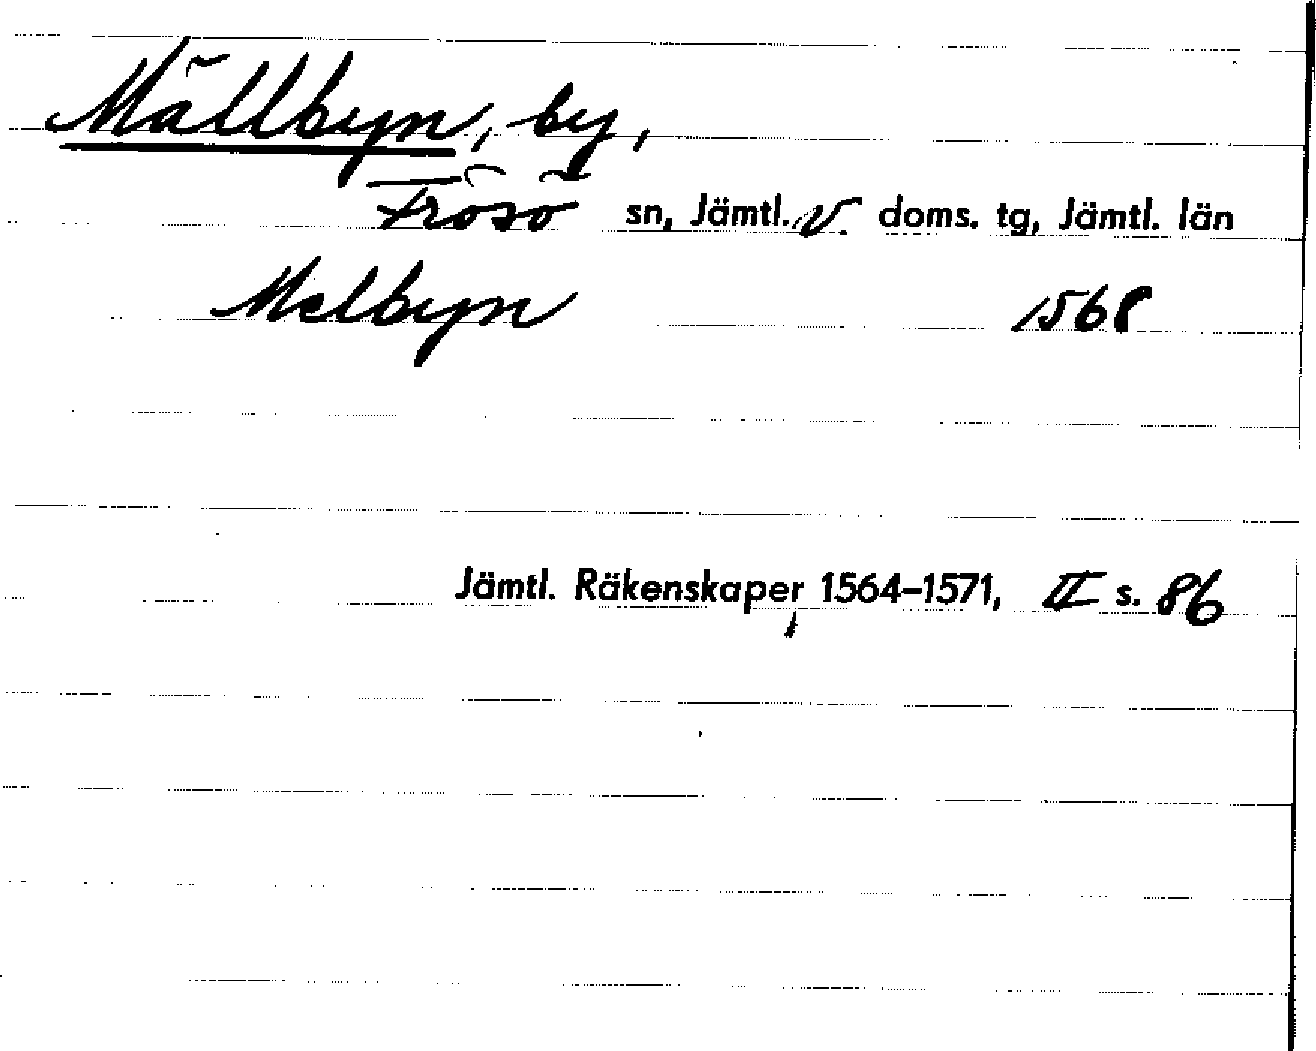 Mällbyn, by,
Frösö sn, Jämtl. v. doms. tg, Jämtl. län
Melbyn 1568
Jämtl. Räkenskaper 1564–1571, II s. 86